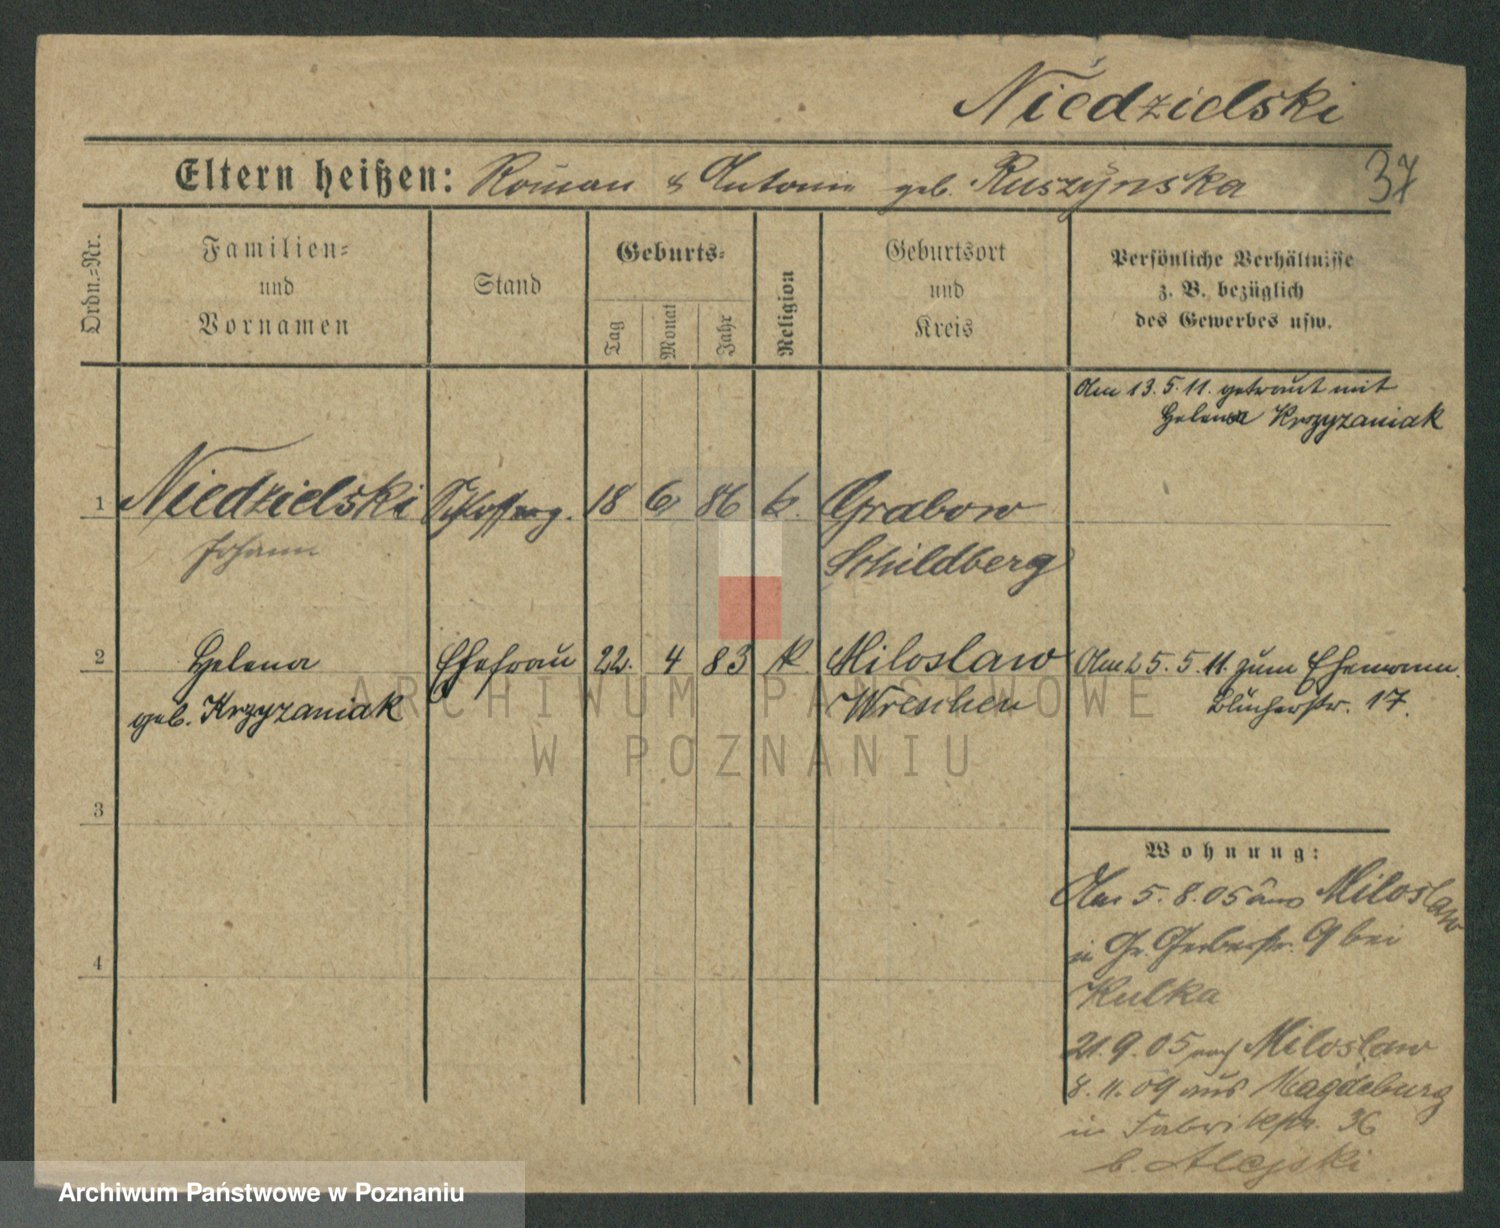 Niedzielski
Eltern heißen: Roman & Antonie geb. Ruszynska
37
Ordn.=Nr.
Familien=
und
Vornamen
Stand
Geburts=
Tag
Monat
Jahr
Religion
Geburtsort
und
Kreis
Persönliche Verhältnisse
z. B. bezüglich
des Gewerbes usw.
Am 13.5.11. getraut mit
Helena Krzyzaniak
1 Niedzielski 18 6 86 k. Grabow
Johann Schildberg
2 Helena Ehefrau 22. 4 83 k. Miloslaw Am 25.5.11. zum Ehemann.
geb. Krzyzaniak Wreschen Blücherstr. 17.
3
4
Wohnung:
Am 5.8.05 aus Miloslaw
in Gr. Gerberstr. 9 bei
Kulka
21.9.05 nach Miloslaw
8.11.09 aus Magdeburg
in Fabrikstr. 36
b. Alejski
ARCHIWUM PAŃSTWOWE
W POZNANIU
Archiwum Państwowe w Poznaniu